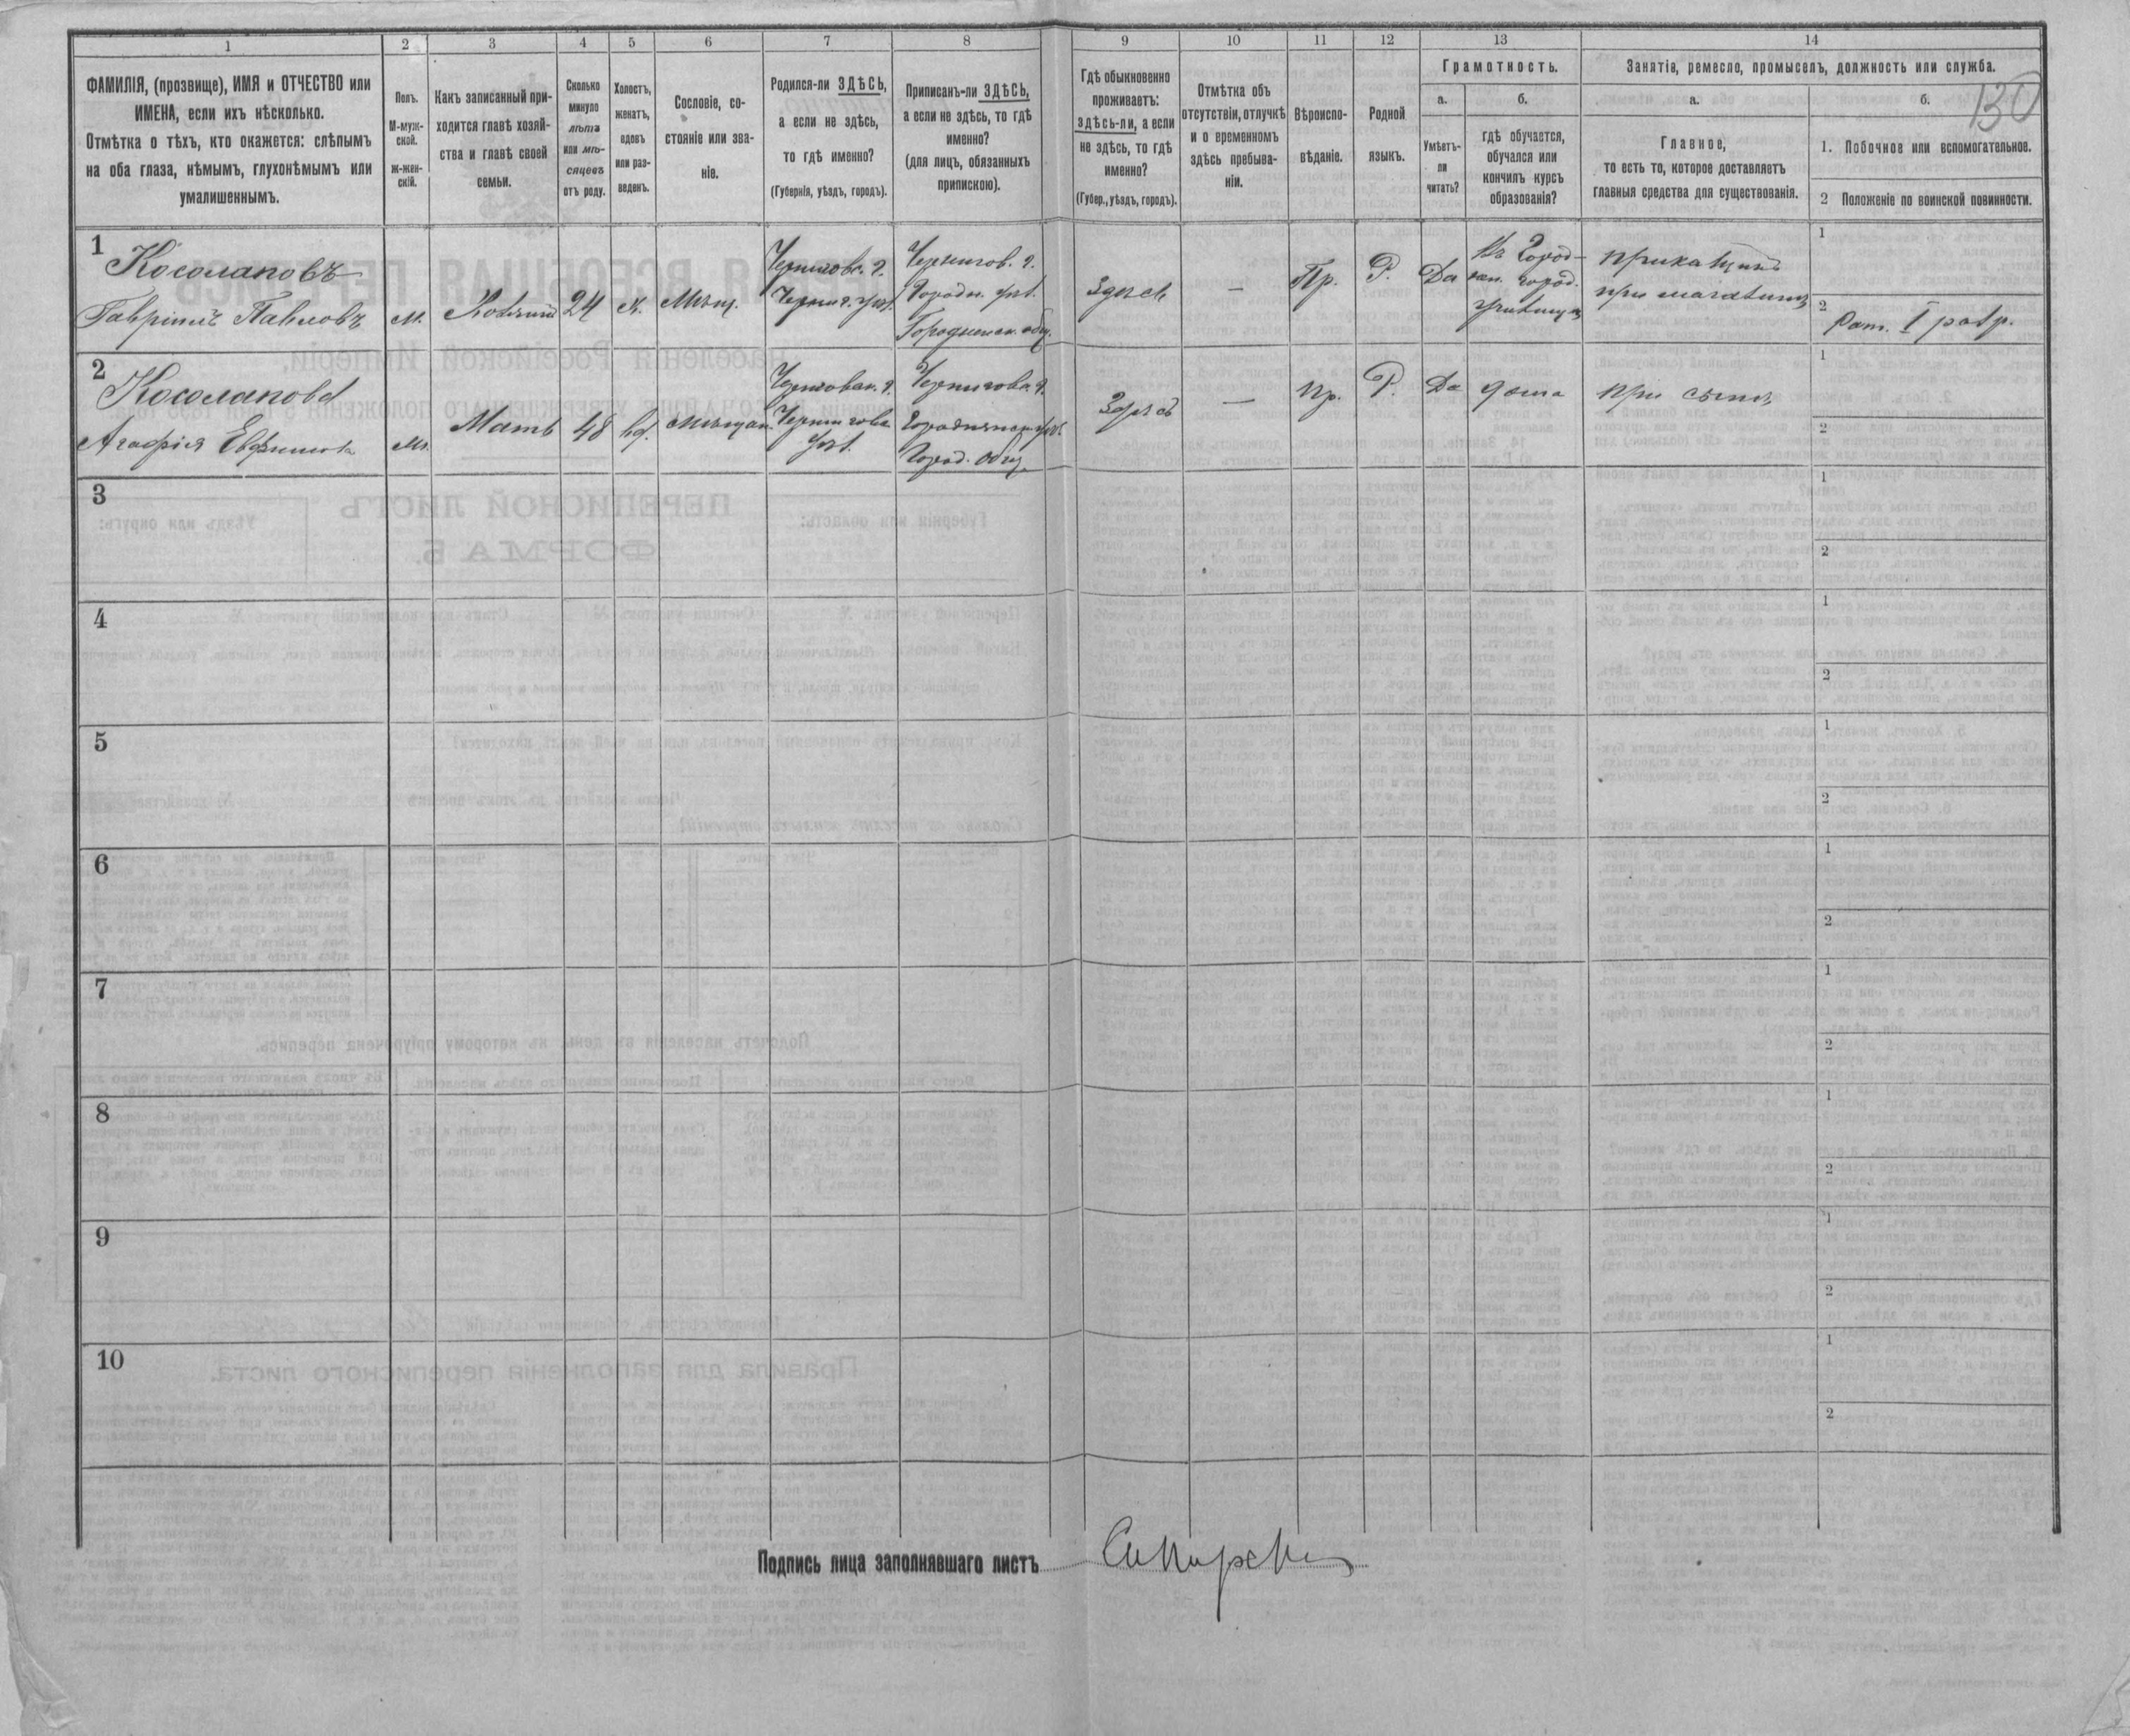 1
2
3
4
5
6
7
8
9
10
11
12
13
14
ФАМИЛІЯ, (прозвище), ИМЯ и ОТЧЕСТВО или
ИМЕНА, если ихъ нѣсколько.
Отмѣтка о тѣхъ, кто окажется: слѣпымъ
на оба глаза, нѣмымъ, глухонѣмымъ или
умалишеннымъ.
Полъ.
М-муж-
ской.
ж-жен-
скій.
Какъ записанный при-
ходится главѣ хозяй-
ства и главѣ своей
семьи.
Сколько
минуло
лѣтъ
или мѣ-
сяцевъ
отъ роду.
Холостъ,
женатъ,
вдовъ
или раз-
веденъ.
Сословіе, со-
стояніе или зва-
ніе.
Родился-ли ЗДѢСЬ,
а если не здѣсь,
то гдѣ именно?
(Губернія, уѣздъ, городъ).
Приписанъ-ли ЗДѢСЬ,
а если не здѣсь, то гдѣ
именно?
(для лицъ, обязанныхъ
припискою).
Гдѣ обыкновенно
проживаетъ:
здѣсь-ли, а если
не здѣсь, то гдѣ
именно?
(Губер., уѣздъ, городъ).
Отмѣтка объ
отсутствіи, отлучкѣ
и о временномъ
здѣсь пребыва-
ніи.
Вѣроиспо-
вѣданіе.
Родной
языкъ.
Грамотность.
а.
Умѣетъ-
ли
читать?
б.
гдѣ обучается,
обучался или
кончилъ курсъ
образованія?
Занятіе, ремесло, промыселъ, должность или служба.
130
а.
Главное,
то есть то, которое доставляетъ
главныя средства для существованія.
б.
1. Побочное или вспомогательное.
2 Положеніе по воинской повинности.
1
Косолаповъ
Гавріилъ Павловъ
М.
Хозяинъ
24
х.
Мѣщ.
Черниговс. г.
Черниг. уѣз.
Чернигов. г.
Городн. уѣз.
Городнянск. общ.
Здѣсь
—
Пр.
Р.
Да
Въ Город-
нян. город.
училищѣ
прикащикъ
при магазинѣ
1
2
Рат. I разр.
2
Косолапова
Агафія Евфимова
Мать
48
вд.
мѣщан.
Черниговск. г.
Чернигов.
уѣз.
Черниговск. г.
Городнянск. уѣз.
Город. общ.
Здѣсь
—
Пр.
Р.
Да
дома
при сынѣ
1
2
3
1
2
4
1
2
5
1
2
6
1
2
7
1
2
8
1
2
9
1
2
10
1
2
Подпись лица заполнявшаго листъ